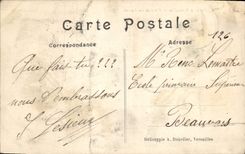 Carte Postale
Correspondance
Adresse
126
Que fait tu ? ? ?
nous t'embrassons
Mr René Lemaître
Ecole primaire Supérieure
Beauvais
Héliotypie A. Bourdier, Versailles